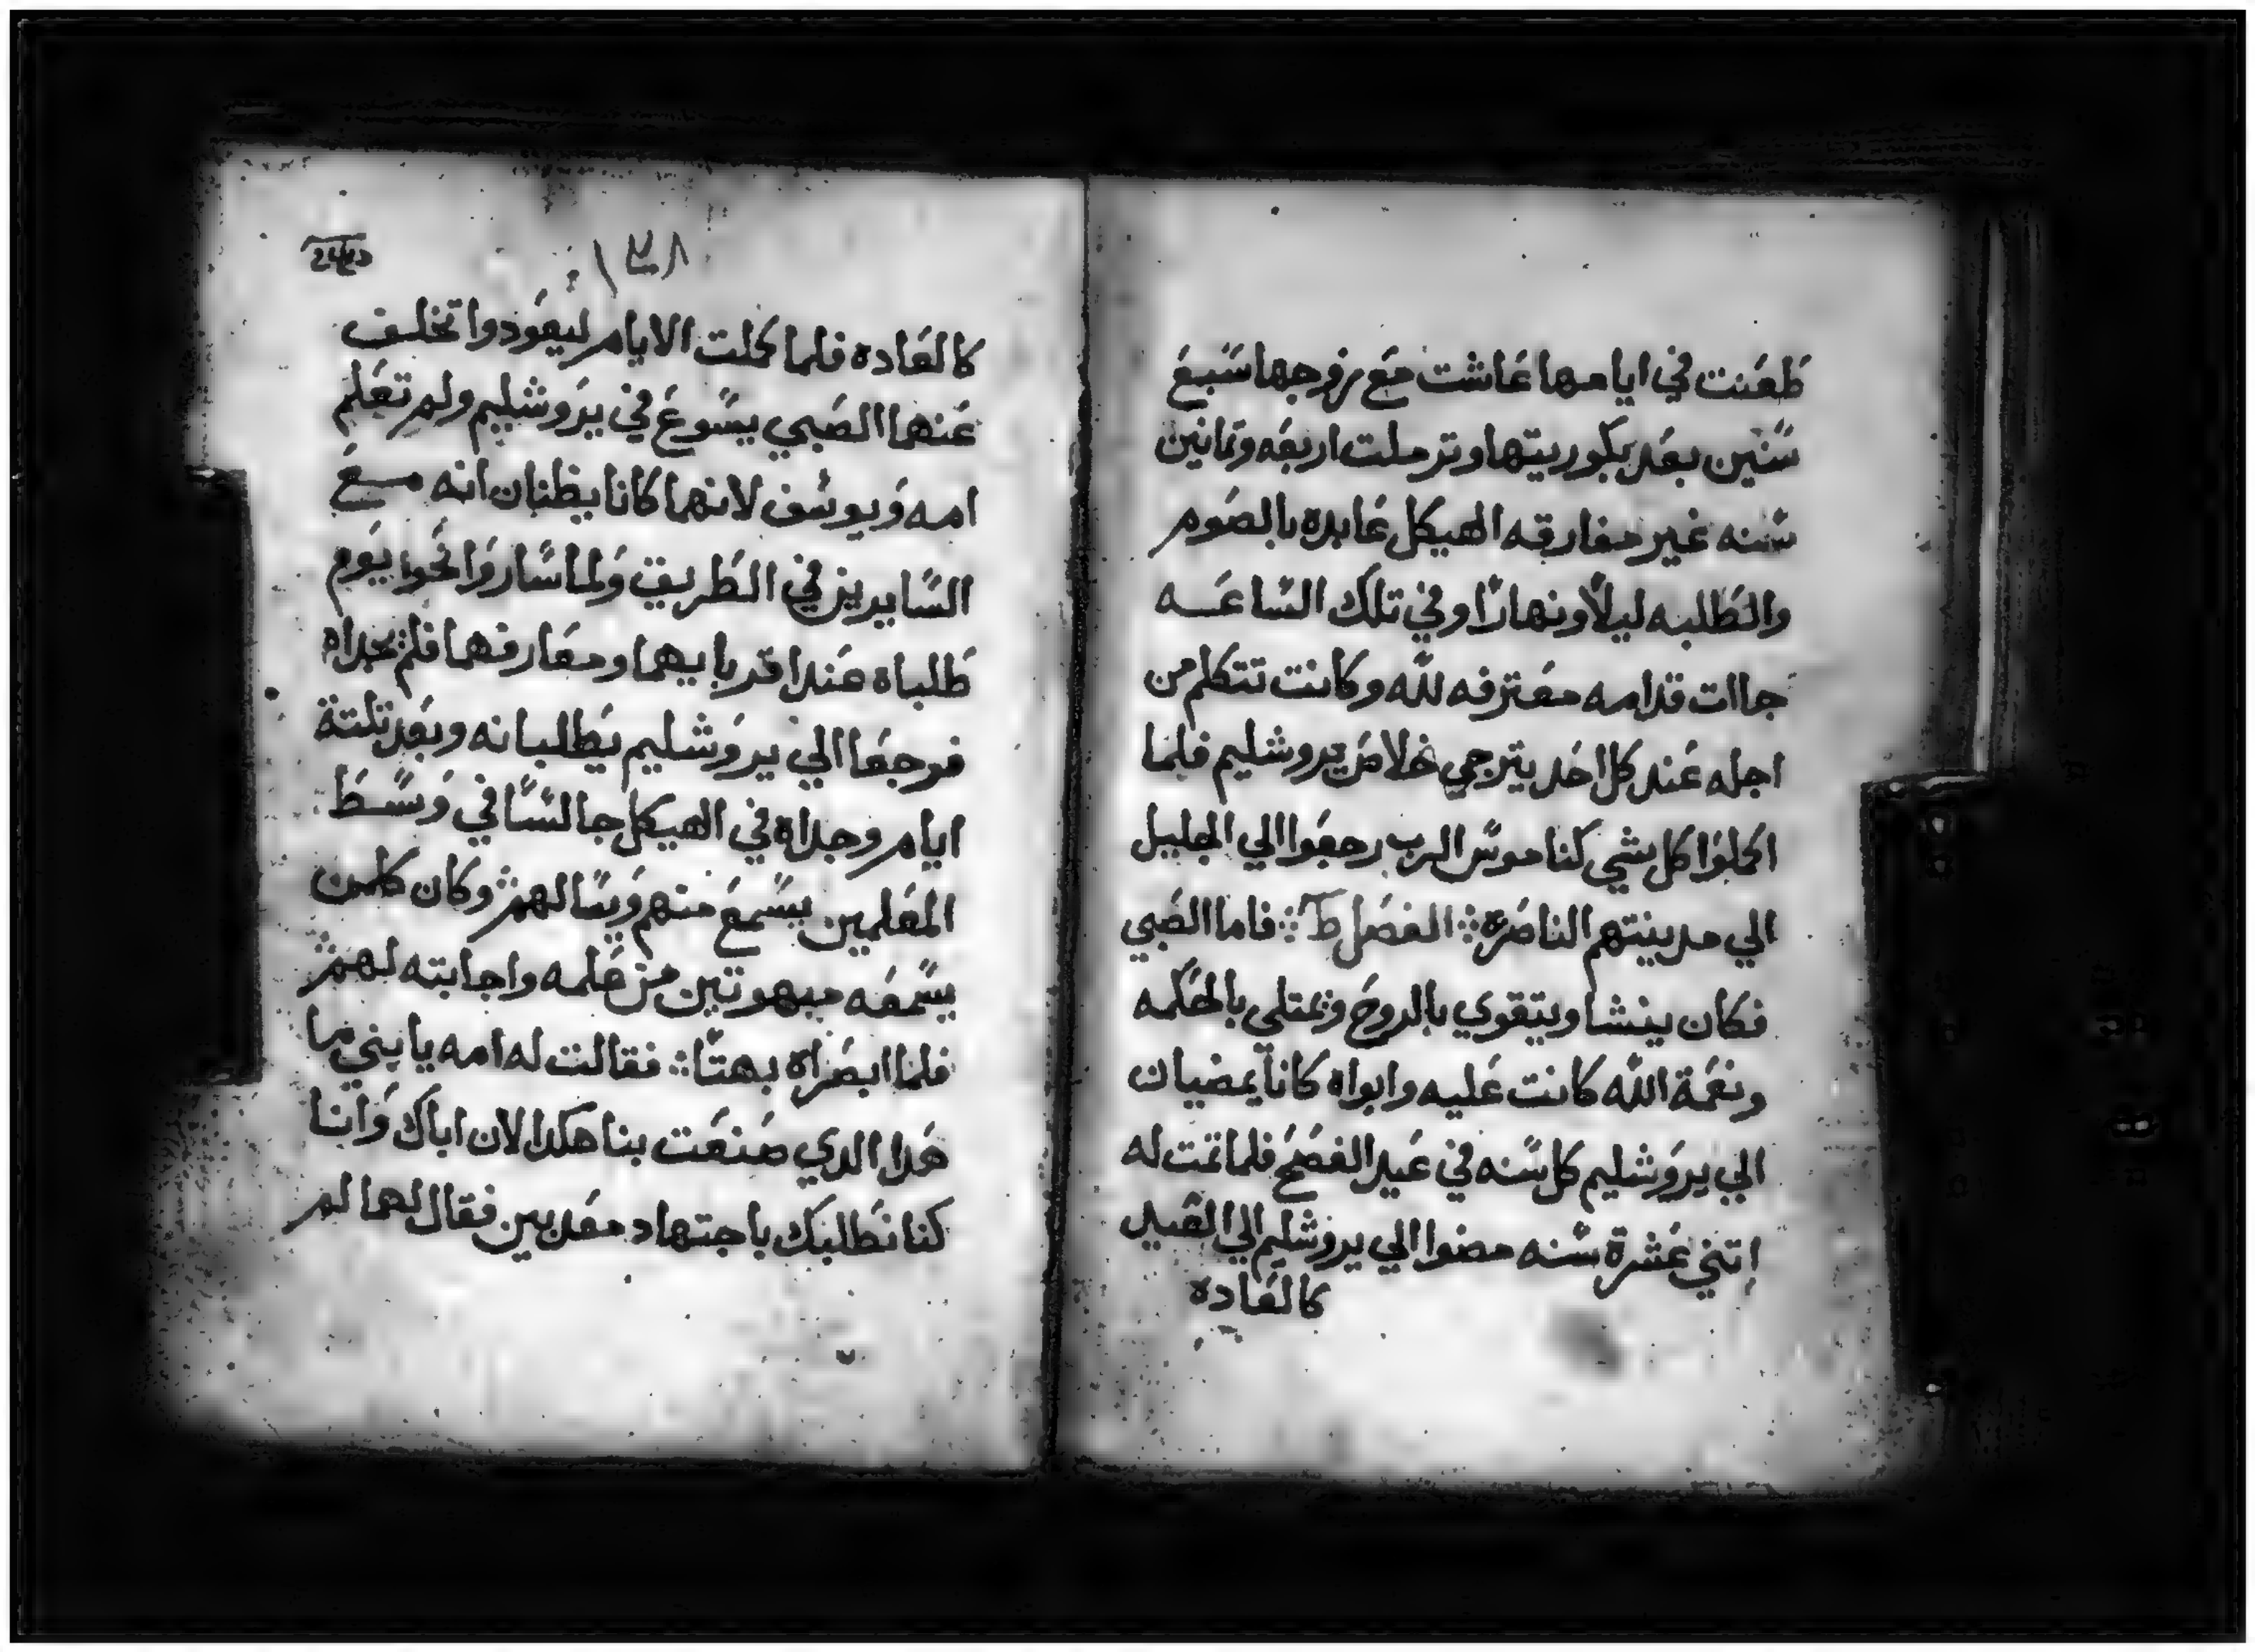 طعنت في ايامها عاشت مع زوجها سبع
سنين بعد بكوريتها وترملت اربعه وتمانين
سنه غير مفارقه الهيكل عابده بالصوم
والطلبه ليلاً ونهاراً وفي تلك الساعه
جاات قدامه معترفه لله وكانت تتكلم من
اجله عند كل احد يترجي خلاص يروشليم فلما
اكملوا كل شي كناموس الرب رجعوا الي الجليل
الي مدينتهم الناصره الفصل ط فاما الصبي
فكان ينشا ويتقوي بالروح ويمتلي بالحكمه
ونعمة الله كانت عليه وابواه كانا يمضيان
الي يروشليم كل سنه في عيد الفصح فلما تمت له
اتني عشرة سنه مضوا الي يروشليم الي العيد
كالعاده
١٣٨
كالعاده فلما كملت الايام ليعودوا تخلف
عنهما الصبي يسوع في يروشليم ولم تعلم
امه ويوسف لانهما كانا يظنان انه مع
السايرين في الطريق ولما ساروا نحو يوم
طلباه عند اقربايهما ومعارفهما فلم يجداه
فرجعا الي يروشليم يطلبانه وبعد تلتة
ايام وجداه في الهيكل جالسا في وسط
المعلمين يسمع منهم ويسالهم وكان كلمن
يسمعه مبهوتين من علمه واجابته لهم
فلما ابصراه بهتا فقالت له امه يا بني ما
هدا الدي صنعت بنا هكدا لان اباك وانا
كنا نطلبك باجتهاد معدبين فقال لهما لم